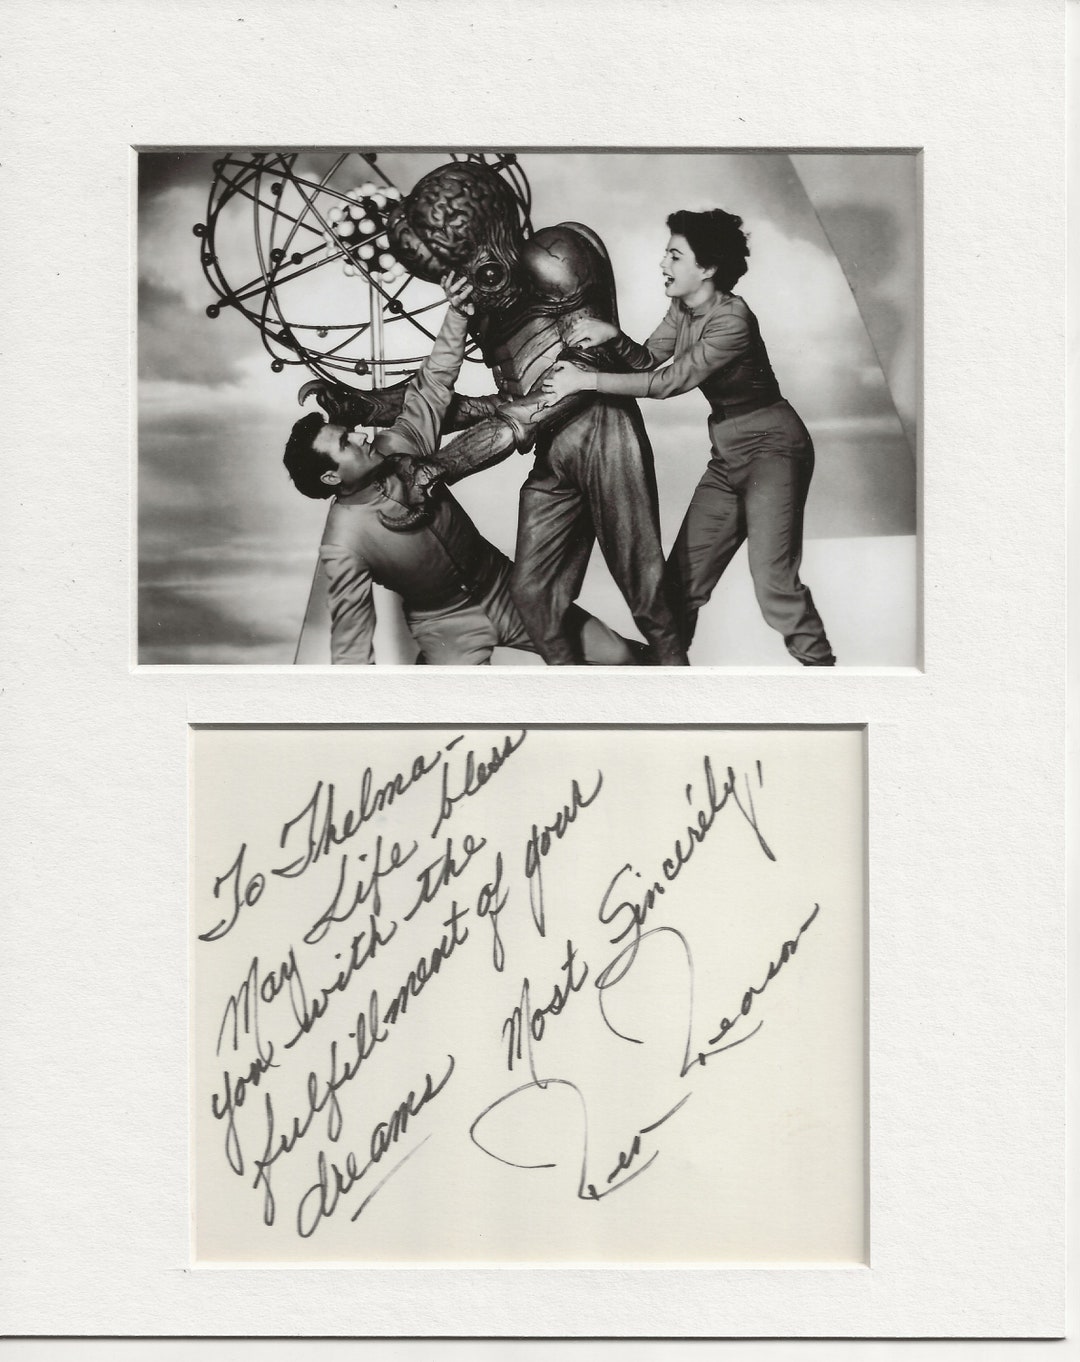 To Thelma-
May Life bless
you with the
fulfillment of your
dreams
Most Sincerely,
Rex Reason